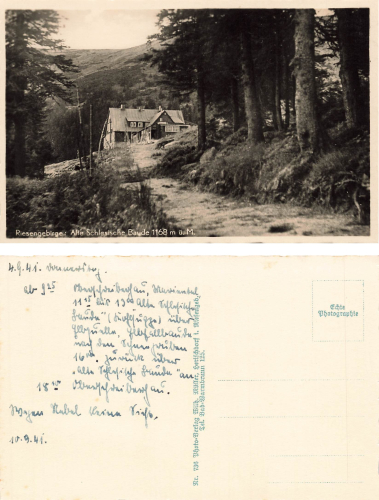 Riesengebirge: Alte Schlesische Baude 1168 m ü. M.
4.9.41. Donnerstag.
ab 9²⁵ Oberschreiberhau, Mariental
11¹⁵ für 13⁰⁰ Alte Schlesische
Baude über
Elbquelle, Elbfallbaude
nach den Schneegruben
zurück über
"Alte Schlesische Baude" an:
Oberschreiberhau.
Wegen Nebel keine Sicht.
10.9.41.
Echte
Photographie
Nr. 736 Photo-Verlag Müller, Herischdorf i. Riesengeb.
Tel. Bad-Warmbrunn 125.